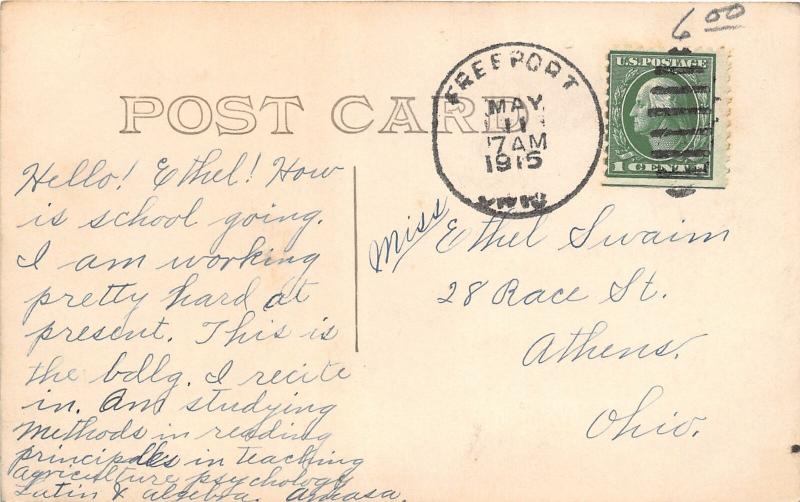 6 00
POST CARD
FREEPORT
MAY
11
7 AM
1915
OHIO
U.S. POSTAGE
1 CENT 1
Hello! Ethel! How
is school going.
I am working
pretty hard at
present. This is
the bdlg. I recite
in. Am studying
methods in reading
principles in teaching
agriculture psychology
Latin & algebra.
Miss Ethel Swaim
28 Race St.
Athens.
Ohio.